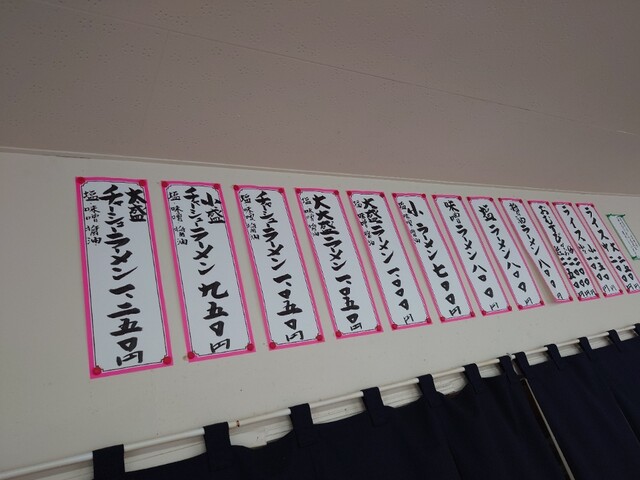 大盛
チャーシューメン 一、二五〇円
塩 味噌 醤油
小盛
チャーシューラーメン 九五〇円
塩 味噌 醤油
チャーシューラーメン 一、〇五〇円
塩 味噌 醤油
大大盛ラーメン 一、〇五〇円
塩 味噌 醤油
大盛ラーメン 一、〇〇〇円
塩 味噌 醤油
小ラーメン 七〇〇円
塩 味噌 醤油
味噌ラーメン 八〇〇円
塩ラーメン 八〇〇円
醤油ラーメン 八〇〇円
おむすび
ライス
ライス